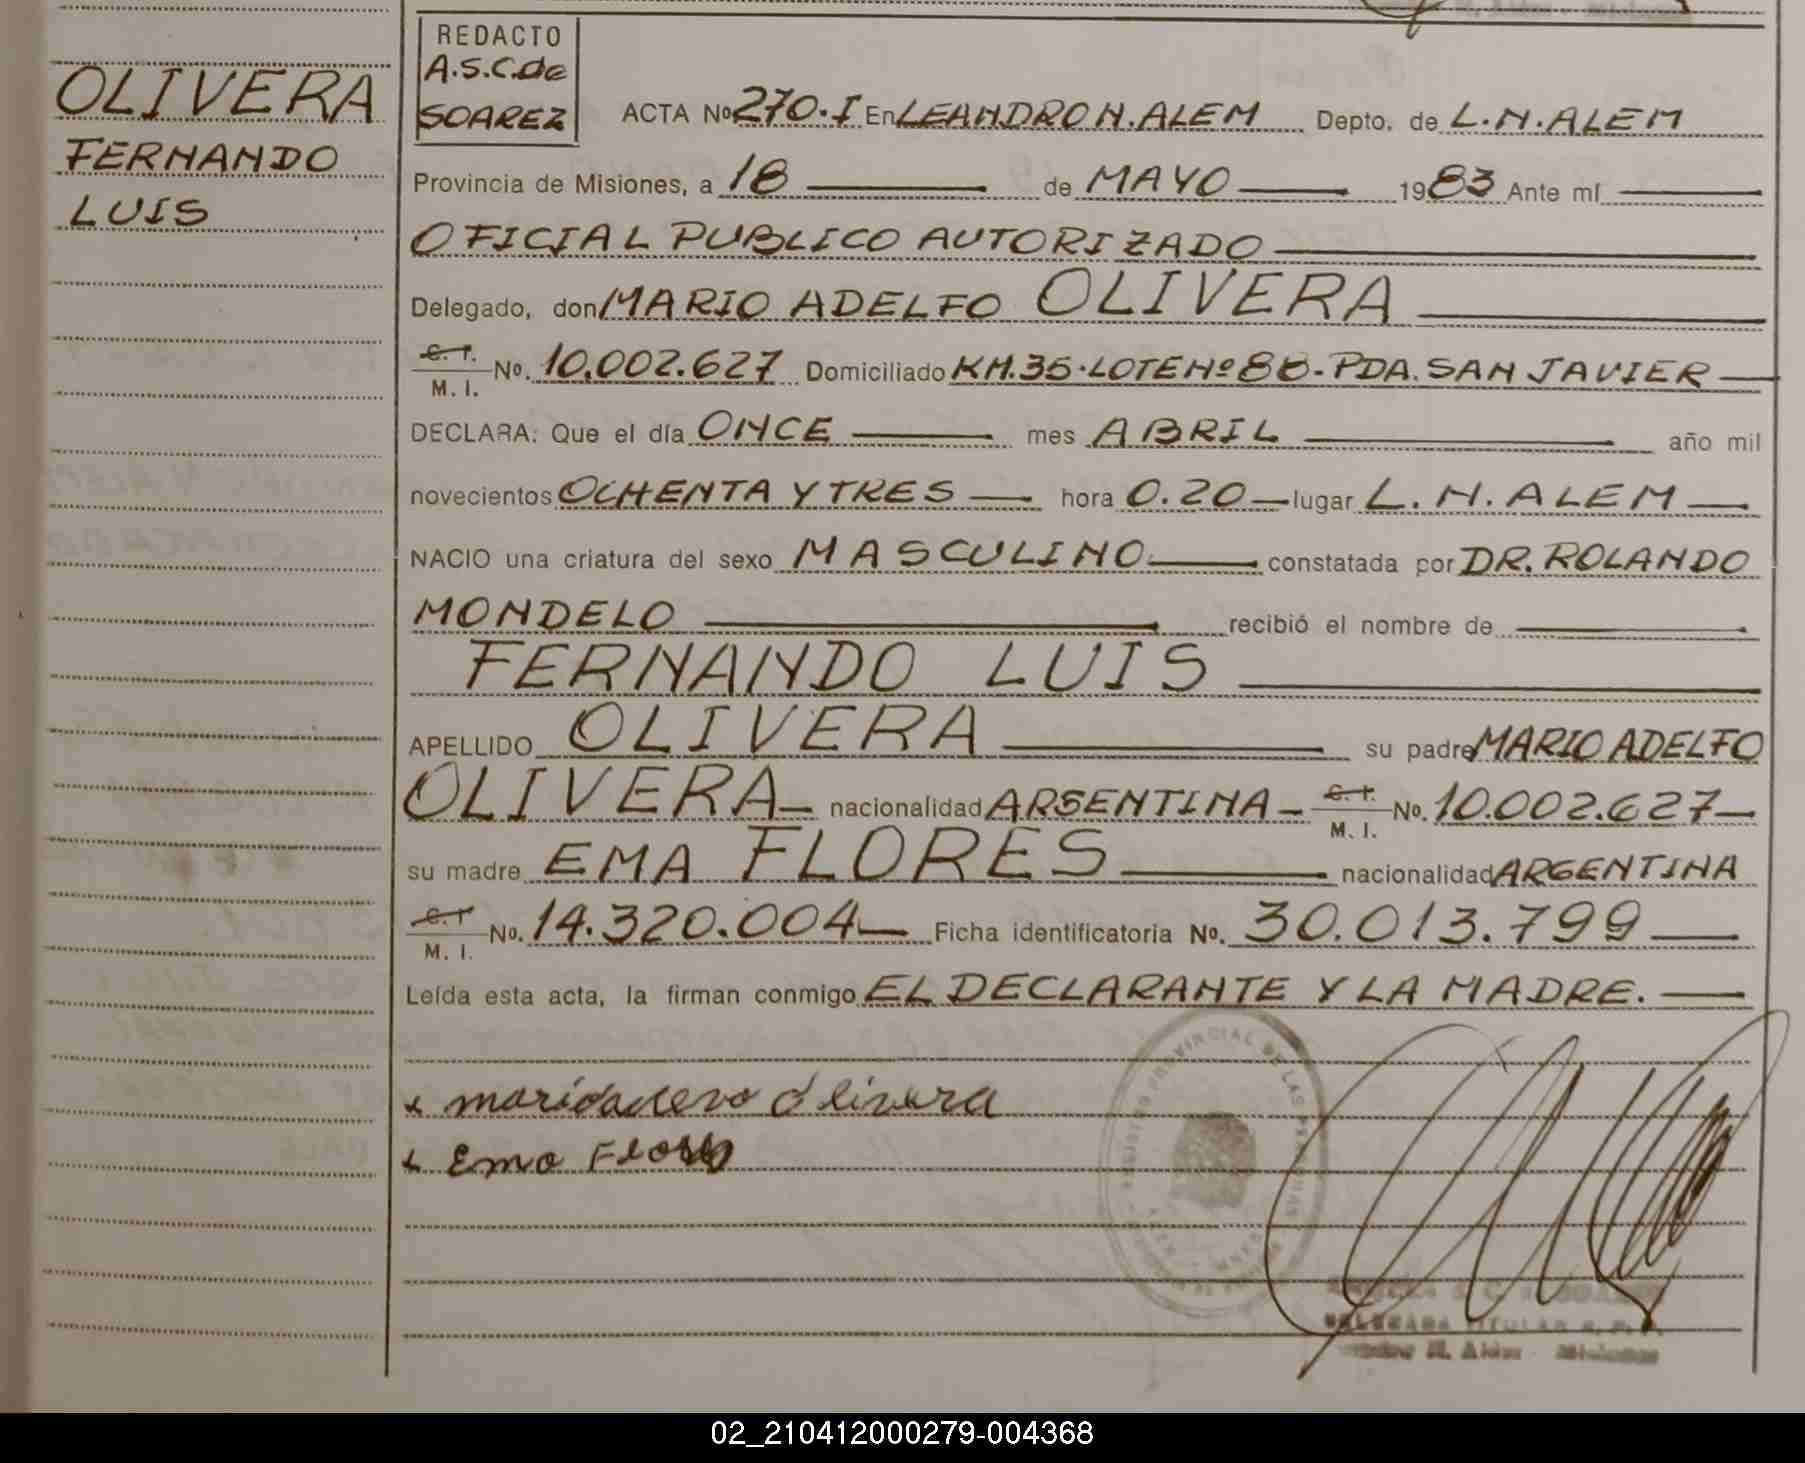 OLIVERA
FERNANDO
LUIS
REDACTO
A.S.C.de
SOAREZ
ACTA Nº 270·I En LEANDRO N. ALEM Depto. de L.N.ALEM
Provincia de Misiones, a 18 de MAYO 1983 Ante mí
OFICIAL PUBLICO AUTORIZADO
Delegado, don MARIO ADELFO OLIVERA
C.I. M.I. No. 10.002.627 Domiciliado KM.35·LOTE Nº 88-PDA. SAN JAVIER
DECLARA: Que el día ONCE mes ABRIL año mil
novecientos OCHENTA Y TRES hora 0.20 lugar L. N. ALEM
NACIO una criatura del sexo MASCULINO constatada por DR. ROLANDO
MONDELO recibió el nombre de
FERNANDO LUIS
APELLIDO OLIVERA su padre MARIO ADELFO
OLIVERA nacionalidad ARGENTINA C.I. M.I. No. 10.002.627
su madre EMA FLORES nacionalidad ARGENTINA
C.I. M.I. No. 14.320.004 Ficha identificatoria No. 30.013.799
Leída esta acta, la firman conmigo EL DECLARANTE Y LA MADRE.
x olivera
x Ema Flores
PROVINCIAL DE LAS PERSONAS
DELEGADA TITULAR
N. Alem Misiones
02_210412000279-004368